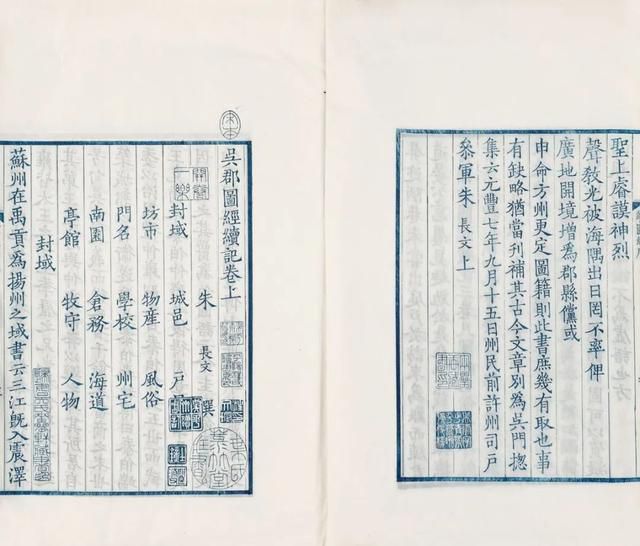 聖上睿謨神烈
聲敎光被海隅出日罔不率俾
廣地開境增爲郡縣儻或
申命方州更定圖籍則此書庶幾有取也事
有缺略猶當刊補其古今文章別爲吳門揔
集云元豐七年九月十五日州民前許州司戶
叅軍朱長文上
吳郡圖經續記卷上
朱長文撰
封域 城邑 戶口
坊市 物產 風俗
門名 學校 州宅
南園 倉務 海道
亭館 牧守 人物
封域
蘇州在禹貢爲揚州之域書云三江旣入震澤